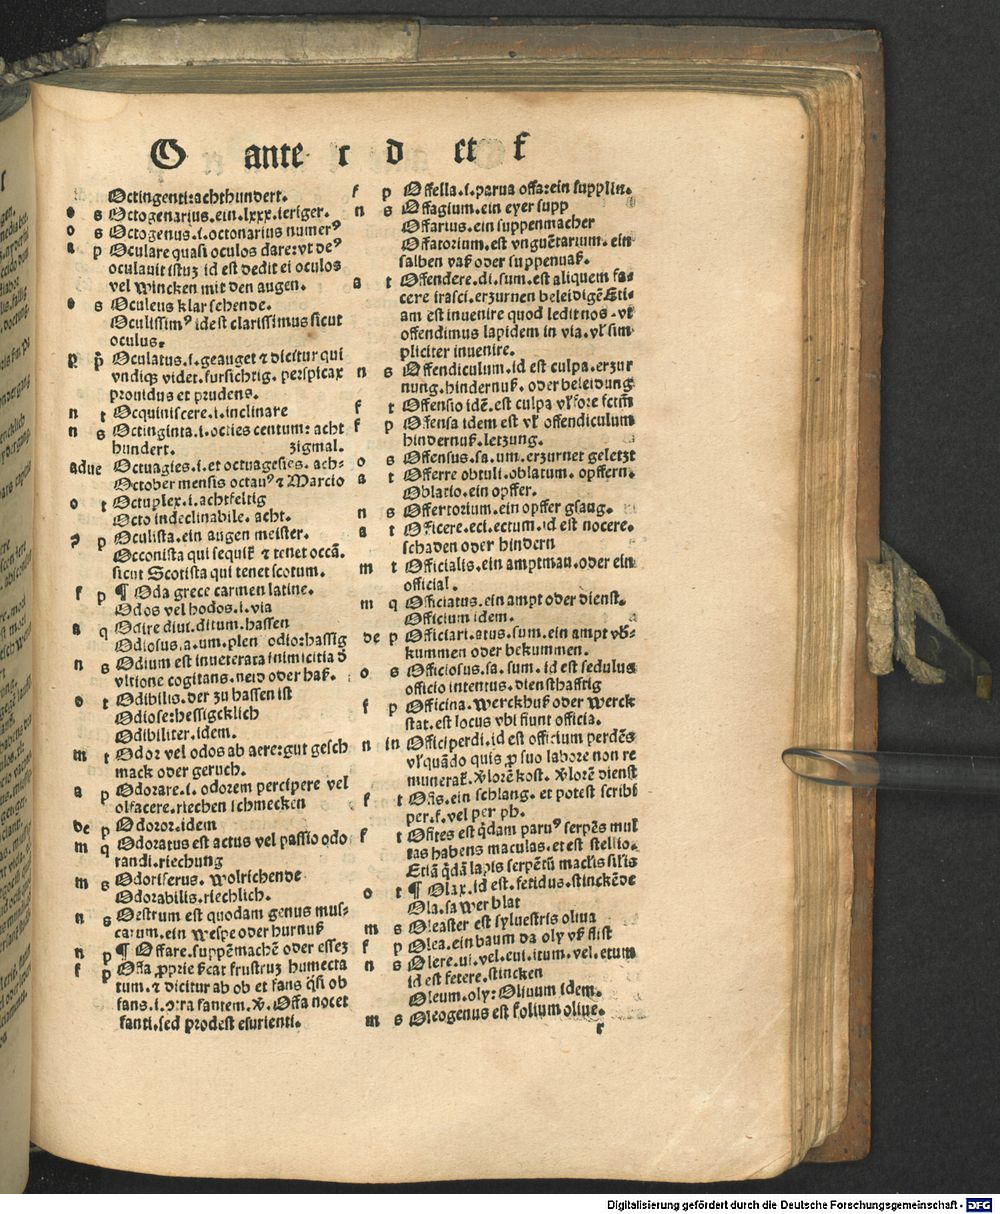 O ante c d et f
Octingenti: achthundert.
o s Octogenarius. ein. lxxx. ieriger.
o s Octogenus. i. octonarius numerꝰ
a p Oculare quasi oculos dare: vt deꝰ
oculauit istuz id est dedit ei oculos
vel wincken mit den augen.
o s Oculeus klar sehende.
Oculissimꝰ id est clarissimus sicut
oculus.
Oculatus. i. geauget ⁊ dicitur qui
vndiqꝫ videt. fursichtig. perspicax
prouidus et prudens.
n t Ocquiniscere. i. inclinare
n s Octinginta. i. octies centum: acht
hundert. zigmal.
adue Octuagies. i. et octuagesies. ach-
October mensis octauꝰ ⁊ Marcio
o t Octuplex. i. achtfeltig
Octo indeclinabile. acht.
p Oculista. ein augen meister.
Occonista qui sequit̃ ⁊ tenet occā.
sicut Scotista qui tenet scotum.
f p ¶ Oda grece carmen latine.
Odos vel hodos. i. via
a q Odire diui. ditum. hassen
Odiosus. a. um. plen odio: hassig
n s Odium est inueterata inimicitia d̄
vltione cogitans. neid oder haß.
o t Odibilis. der zu hassen ist
Odiose: hessigcklich
Odibiliter. idem.
m t Odor vel odos ab aere: gut gesch
mack oder geruch.
a p Odorare. i. odorem percipere vel
olfacere. riechen schmecken
de p Odoror. idem
m q Odoratus est actus vel passio odo
randi. riechung
m s Odoriferus. wolrichende
Odorabilis. riechlich.
n s Oestrum est quodam genus mus-
carum. ein wespe oder hurnuß
n p ¶ Offare. suppēmachē oder essez
f p Offa ꝓprie ßcat frustruz humecta
tum. ⁊ dicitur ab ob et fans q̄si ob
fans. i. ꝯtra fantem. Offa nocet
fanti. sed prodest esurienti.
f p Offella. i. parua offa: ein supplin.
n s Offagium. ein eyer supp
Offarius. ein suppenmacher
Offatorium. est vnguētarium. ein
salben vaß oder suppenuaß.
a t Offendere. di. sum. est aliquem fa-
cere irasci. erzurnen beleidigē Eti-
am est inuenire quod ledit nos. vl̓
offendimus lapidem in via. vl̓ sim
pliciter inuenire.
n s Offendiculum. id est culpa. erzur
nung. hindernuß. oder beleidung
f t Offensio idē. est culpa vl̓ fore fctm̄
f p Offensa idem est vl̓ offendiculum
hindernuß. letzung.
o s Offensus. sa. um. erzurnet geletzt
a t Offerre obtuli. oblatum. opffern.
Oblatio. ein opffer.
n s Offertorium. ein opffer gsang.
a t Officere. eci. ectum. id est nocere.
schaden oder hindern
m t Officialis. ein amptman. oder ein
official.
m q Officiatus. ein ampt oder dienst.
Officium idem.
de p Officiari. atus. sum. ein ampt vß-
kummen oder bekummen.
o s Officiosus. sa. sum. id est sedulus
officio intentus. diensthafftig
f p Officina. werckhuß oder werck
stat. est locus vbi fiunt officia.
n in Officiperdi. id est officium perdēs
vl̓ quādo quis ꝓ suo labore non re
munerat̃. vͦlorē kost. vͦlorē dienst
f t Ofis. ein schlang. et potest scribi
per. f. vel per ph.
f t Ofites est q̄dam paruꝰ serpēs mul
tas habens maculas. et est stellio.
Etiā q̄dā lapis serpētū maclis silis
o t ¶ Olax. id est. fetidus. stinckēde
Ola. sawerblat
m s Oleaster est syluestris oliua
f p Olea. ein baum da oly vß flist
n s Olere. ui. vel. eui. itum. vel. etum
id est fetere. stincken
Oleum. oly: Oliuum idem.
m s Oleogenus est folium oliue.
r
Digitalisierung gefördert durch die Deutsche Forschungsgemeinschaft - DFG